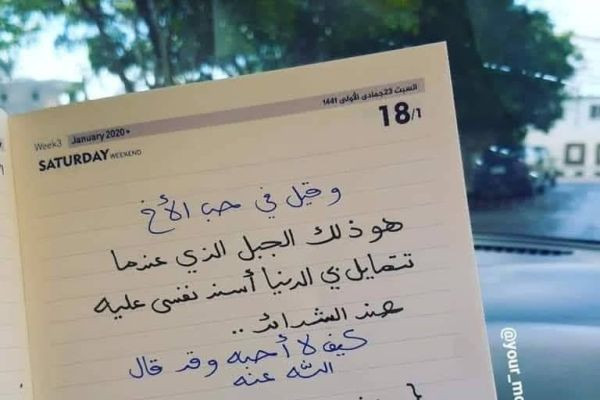 Week3 January 2020
السبت 23جمادى الأولى 1441
SATURDAY WEEKEND
18/1
وقيل في حب الأخ
هو ذلك الجبل الذي عندما
تتمايل بي الدنيا أسند نفسي عليه
عند الشدائد ..
كيف لا أحبه وقد قال
الله عنه
@your_mo